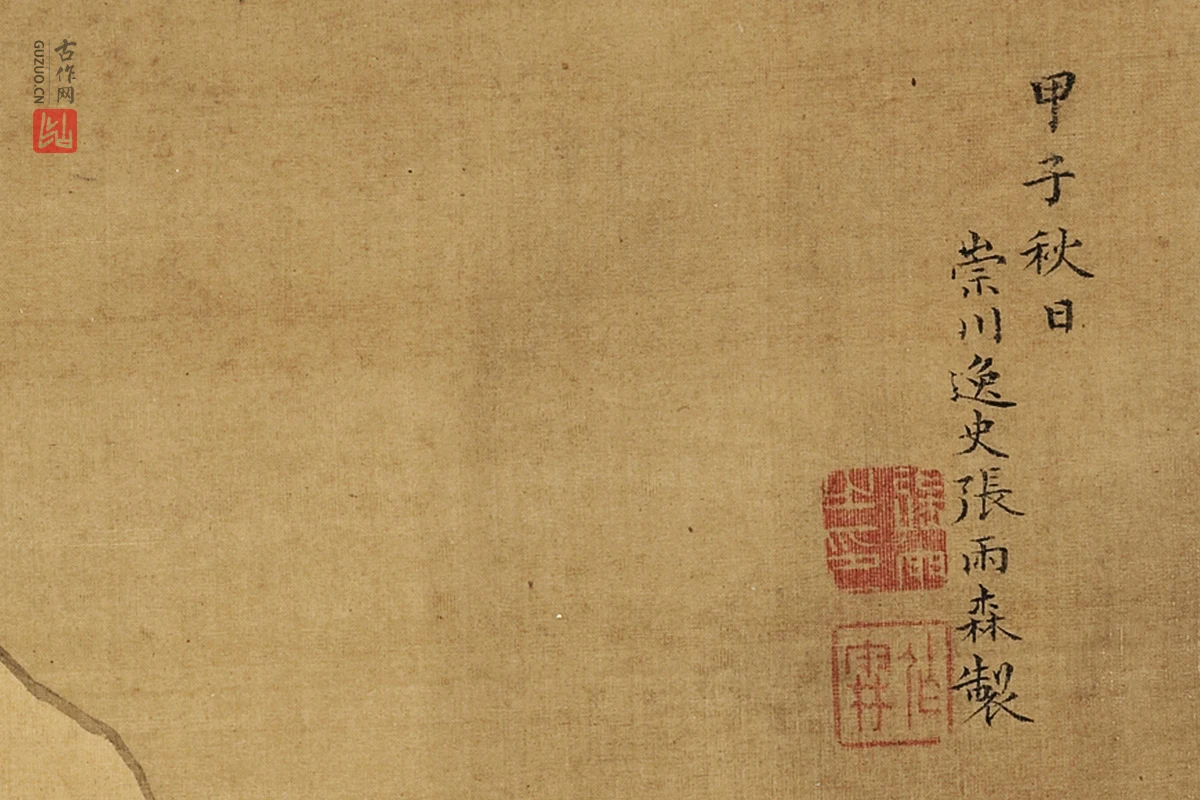 甲子秋日
崇川逸史張雨森製
古作网
GUZUO.CN